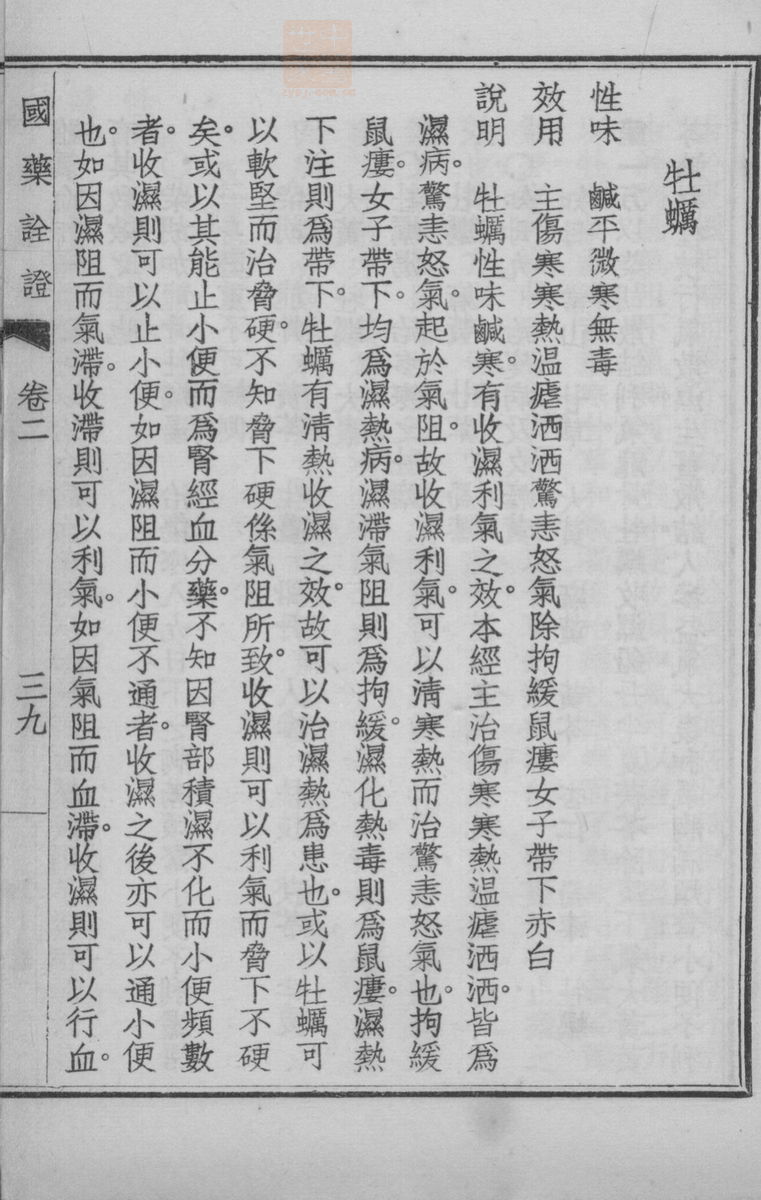 牡蠣
性味　鹹平微寒無毒
效用　主傷寒寒熱温瘧洒洒驚恚怒氣除拘緩鼠瘻女子帶下赤白
說明　牡蠣性味鹹寒。有收濕利氣之效。本經主治傷寒寒熱温瘧洒洒。皆爲
濕病。驚恚怒氣。起於氣阻。故收濕利氣。可以清寒熱而治驚恚怒氣也。拘緩
鼠瘻。女子帶下。均爲濕熱病。濕滯氣阻則爲拘緩。濕化熱毒則爲鼠瘻。濕熱
下注則爲帶下。牡蠣有清熱收濕之效。故可以治濕熱爲患也。或以牡蠣可
以軟堅而治脅硬。不知脅下硬係氣阻所致。收濕則可以利氣而脅下不硬
矣。或以其能止小便而爲腎經血分藥。不知因腎部積濕不化而小便頻數
者。收濕則可以止小便。如因濕阻而小便不通者。收濕之後亦可以通小便
也。如因濕阻而氣滯。收滯則可以利氣。如因氣阻而血滯。收濕則可以行血。
國藥詮證　卷二　三九